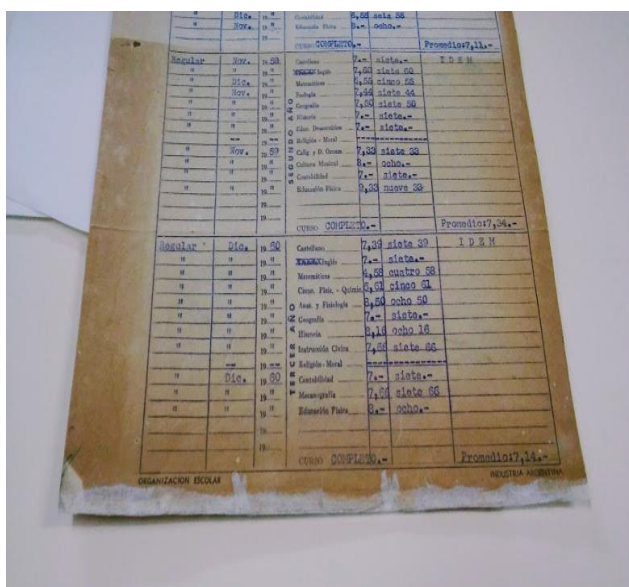 " Dic. 19 " Contabilidad 6,58 seis 58
" Nov. 19 " Educación Física 8.- ocho.-
CURSO COMPLETO.- Promedio:7,11.-
Regular Nov. 19 59 Castellano 7.- siete.- I D E M
" " 19 " Inglés 7,60 siete 60
" Dic. 19 " Matemáticas 5,55 cinco 55
" Nov. 19 " Zoología 7,44 siete 44
" " 19 " Geografía 7,50 siete 50
" " 19 " Historia 7.- siete.-
" " 19 " Educ. Democrática 7.- siete.-
-- 19 -- Religión - Moral ----------
" Nov. 19 59 Calig. y D. Ornam. 7,33 siete 33
" " 19 " Cultura Musical 8.- ocho.-
" " 19 " Contabilidad 7.- siete.-
" " 19 " Educación Física 9,33 nueve 33
19
19
SEGUNDO AÑO
CURSO COMPLETO.- Promedio:7,34.-
Regular Dic. 19 60 Castellano 7,39 siete 39 I D E M
" " 19 " Inglés 7.- siete.-
" " 19 " Matemáticas 4,58 cuatro 58
" " 19 " Cienc. Fisic. - Quimic. 5,61 cinco 61
" " 19 " Anat. y Fisiología 8,50 ocho 50
" " 19 " Geografía 7.- siete.-
" " 19 " Historia 8,16 ocho 16
" " 19 " Instrucción Cívica 7,66 siete 66
-- 19 -- Religión - Moral ----------
" Dic. 19 60 Contabilidad 7.- siete.-
" " 19 " Mecanografía 7,66 siete 66
" " 19 " Educación Física 8.- ocho.-
19
19
TERCER AÑO
CURSO COMPLETO.- Promedio:7,14.-
ORGANIZACION ESCOLAR INDUSTRIA ARGENTINA